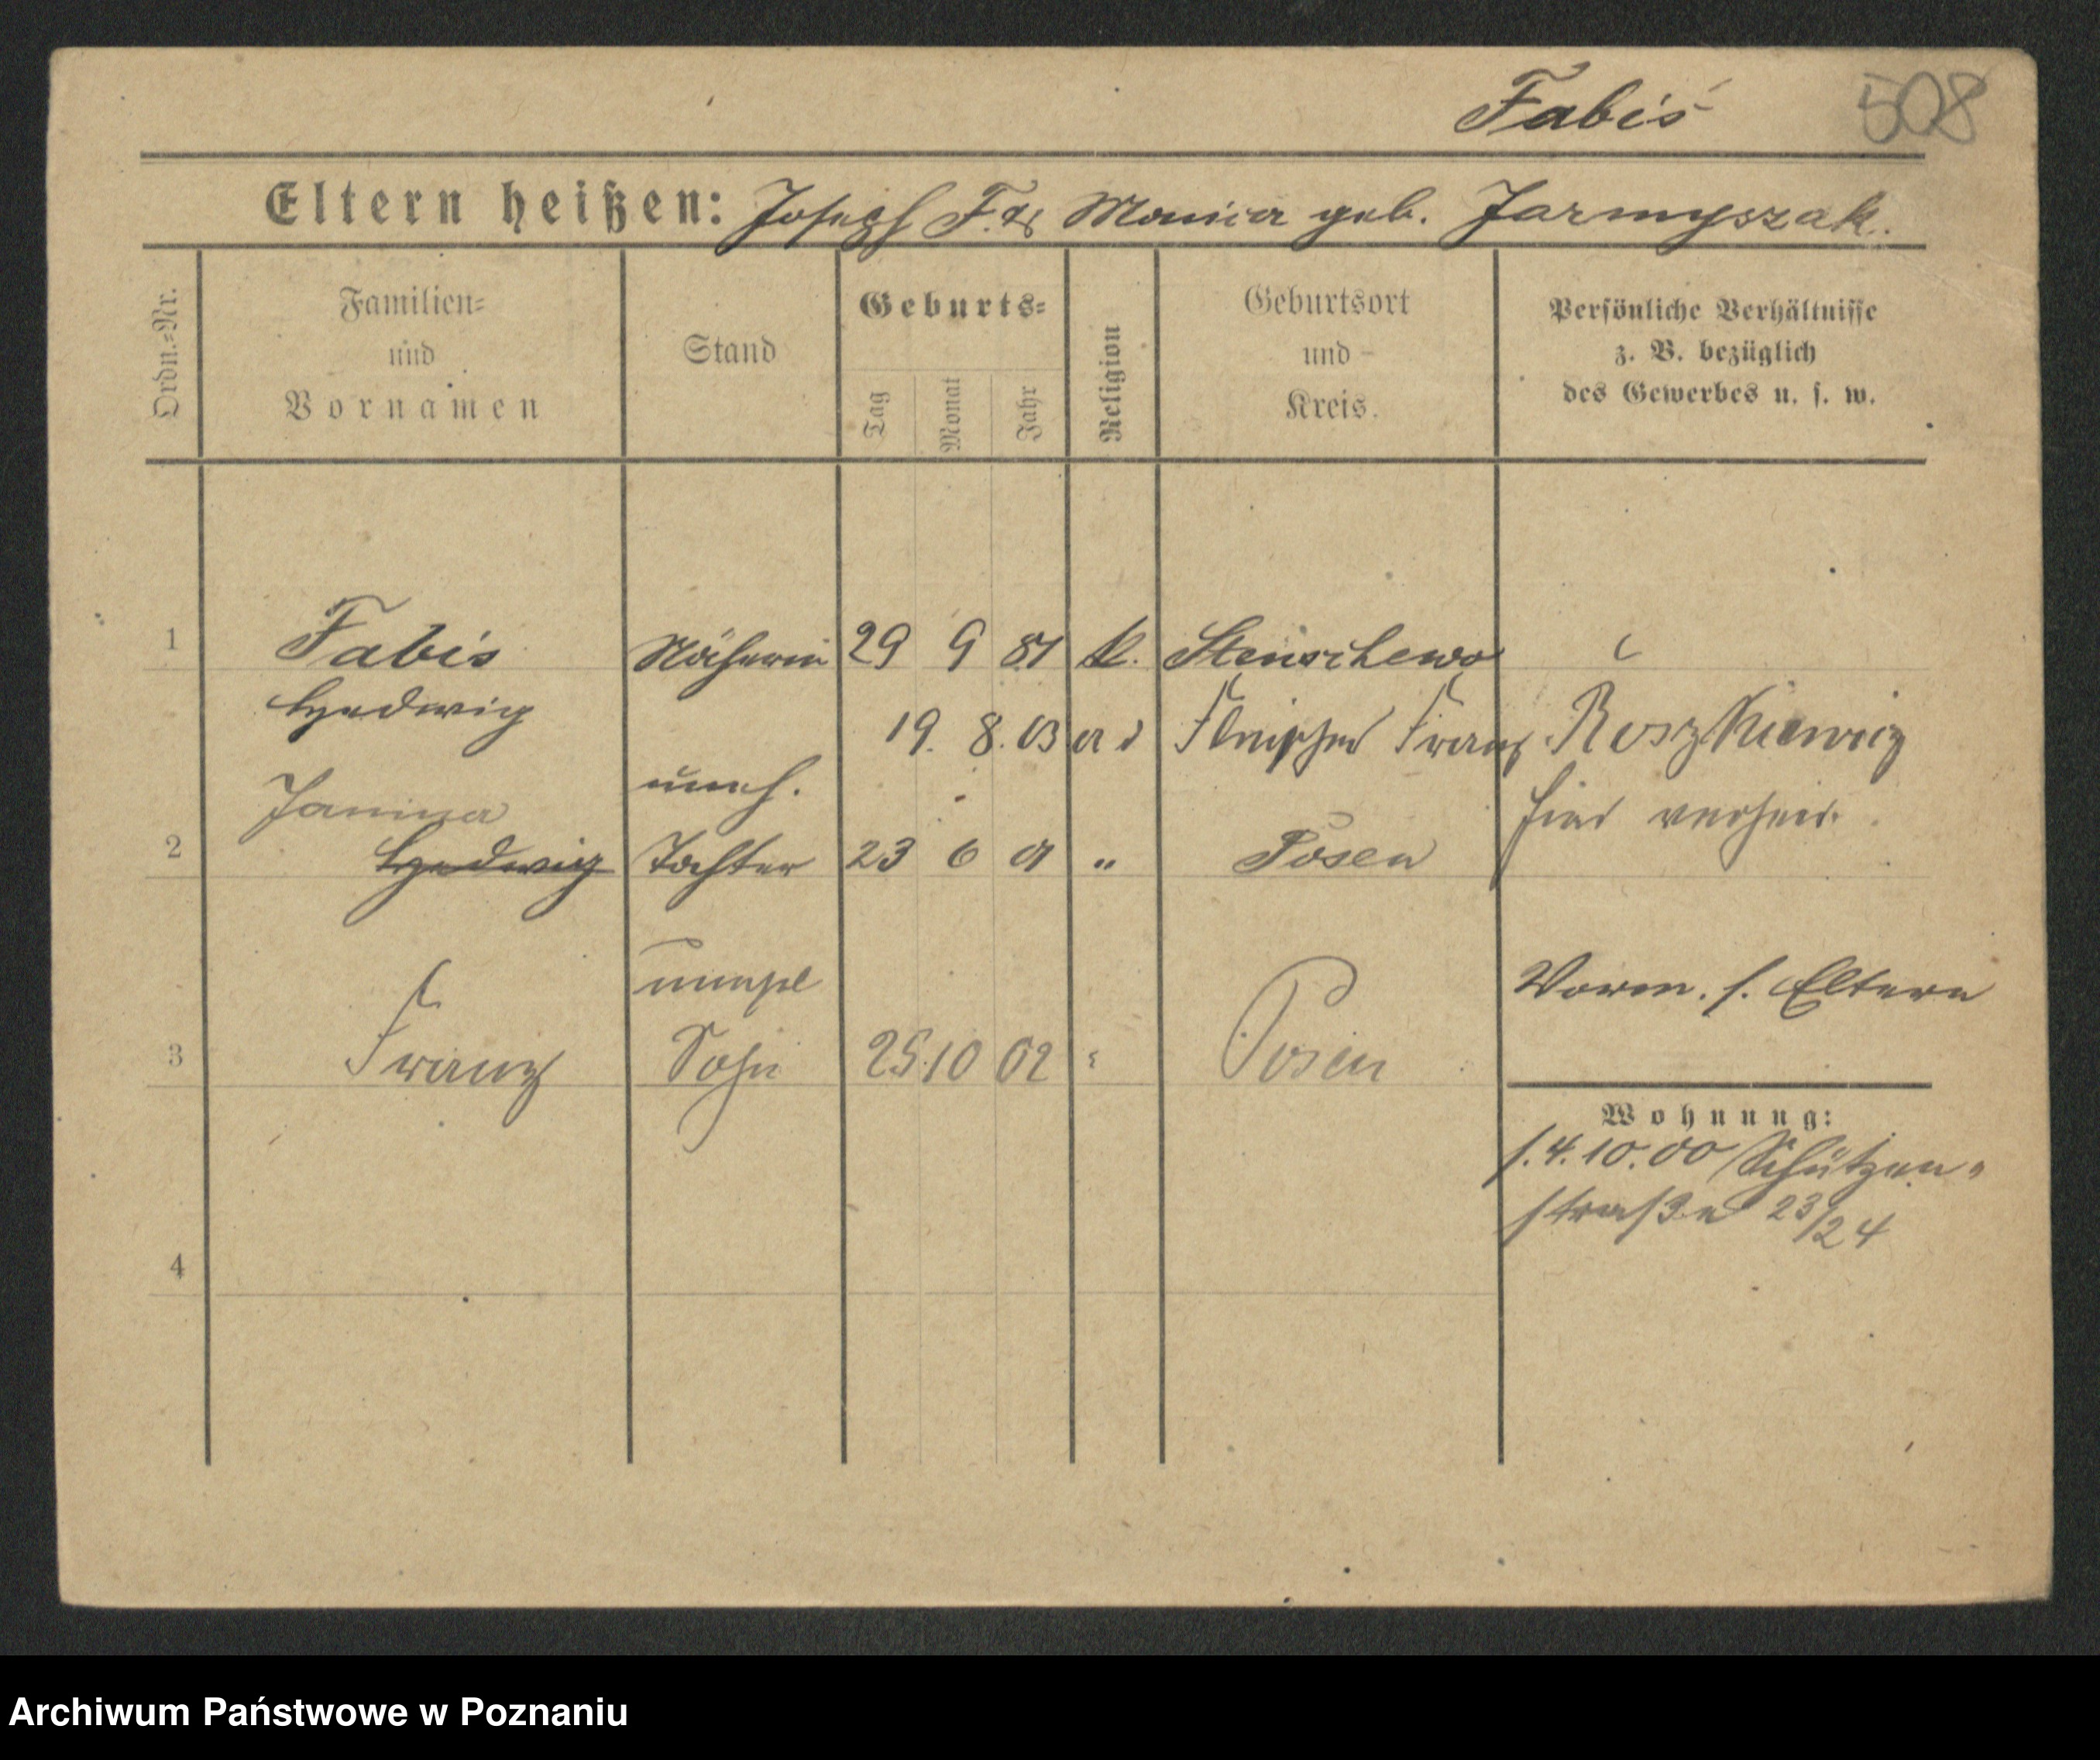 Fabiś 508
Eltern heißen: Joseph F. & Monica geb. Jarmyszak.
Ordn.=Nr.
Familien=
und
Vornamen
Stand
Geburts=
Tag
Monat
Jahr
Religion
Geburtsort
und
Kreis.
Persönliche Verhältnisse
z. B. bezüglich
des Gewerbes u. s. w.
1 Fabiś Näherin 29 9 81 k. Stenschewo
Hedwig
19. 8. 03 Franz Roszkiewicz
hier verheir.
Janina uneh.
2 Hedwig Tochter 23 6 01 " Posen
Vorm. s. Eltern
3 Franz Sohn 25 10 02 " Posen
Wohnung:
s. 4. 10. 00 Schützen=
straße 23/24
4
Archiwum Państwowe w Poznaniu